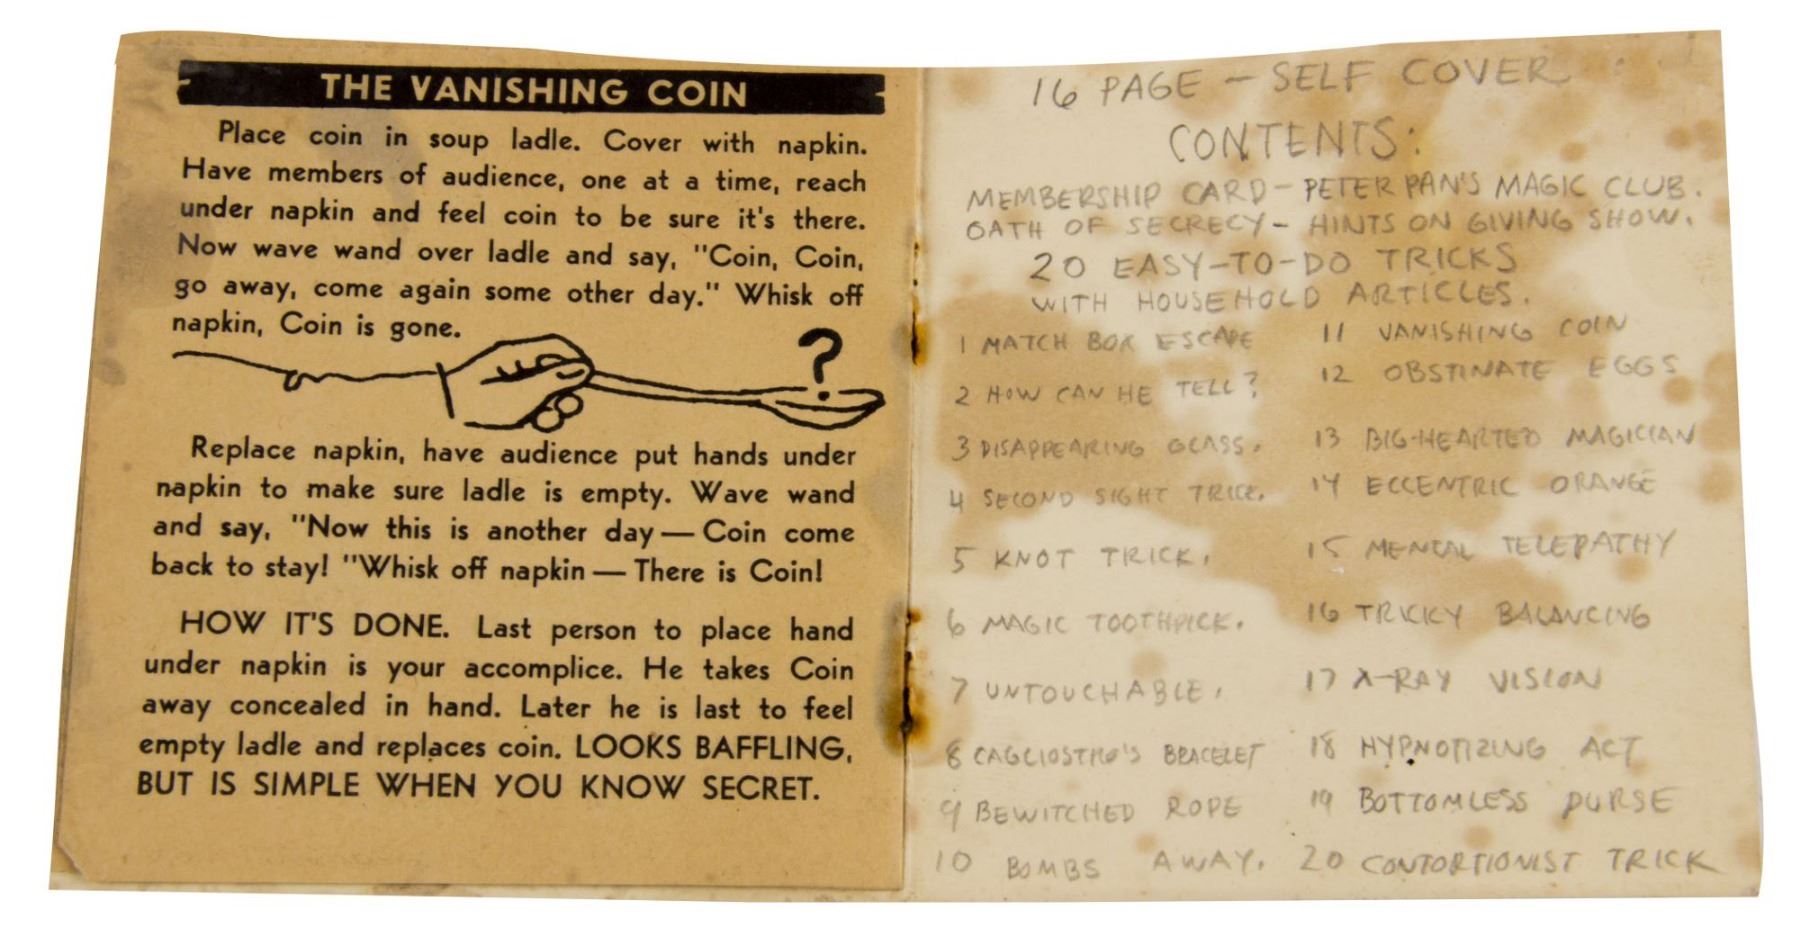 THE VANISHING COIN
Place coin in soup ladle. Cover with napkin.
Have members of audience, one at a time, reach
under napkin and feel coin to be sure it's there.
Now wave wand over ladle and say, "Coin, Coin,
go away, come again some other day." Whisk off
napkin, Coin is gone.
?
Replace napkin, have audience put hands under
napkin to make sure ladle is empty. Wave wand
and say, "Now this is another day — Coin come
back to stay! "Whisk off napkin — There is Coin!
HOW IT'S DONE. Last person to place hand
under napkin is your accomplice. He takes Coin
away concealed in hand. Later he is last to feel
empty ladle and replaces coin. LOOKS BAFFLING,
BUT IS SIMPLE WHEN YOU KNOW SECRET.
16 PAGE - SELF COVER
CONTENTS:
MEMBERSHIP CARD - PETER PAN'S MAGIC CLUB.
OATH OF SECRECY - HINTS ON GIVING SHOW.
20 EASY-TO-DO TRICKS
WITH HOUSEHOLD ARTICLES.
1 MATCH BOX ESCAPE
2 HOW CAN HE TELL?
3 DISAPPEARING GLASS.
4 SECOND SIGHT TRICK.
5 KNOT TRICK.
6 MAGIC TOOTHPICK.
7 UNTOUCHABLE.
8 CAGLIOSTRO'S BRACELET
9 BEWITCHED ROPE
10 BOMBS AWAY.
11 VANISHING COIN
12 OBSTINATE EGGS
13 BIG-HEARTED MAGICIAN
14 ECCENTRIC ORANGE
15 MENTAL TELEPATHY
16 TRICKY BALANCING
17 X-RAY VISION
18 HYPNOTIZING ACT
19 BOTTOMLESS PURSE
20 CONTORTIONIST TRICK